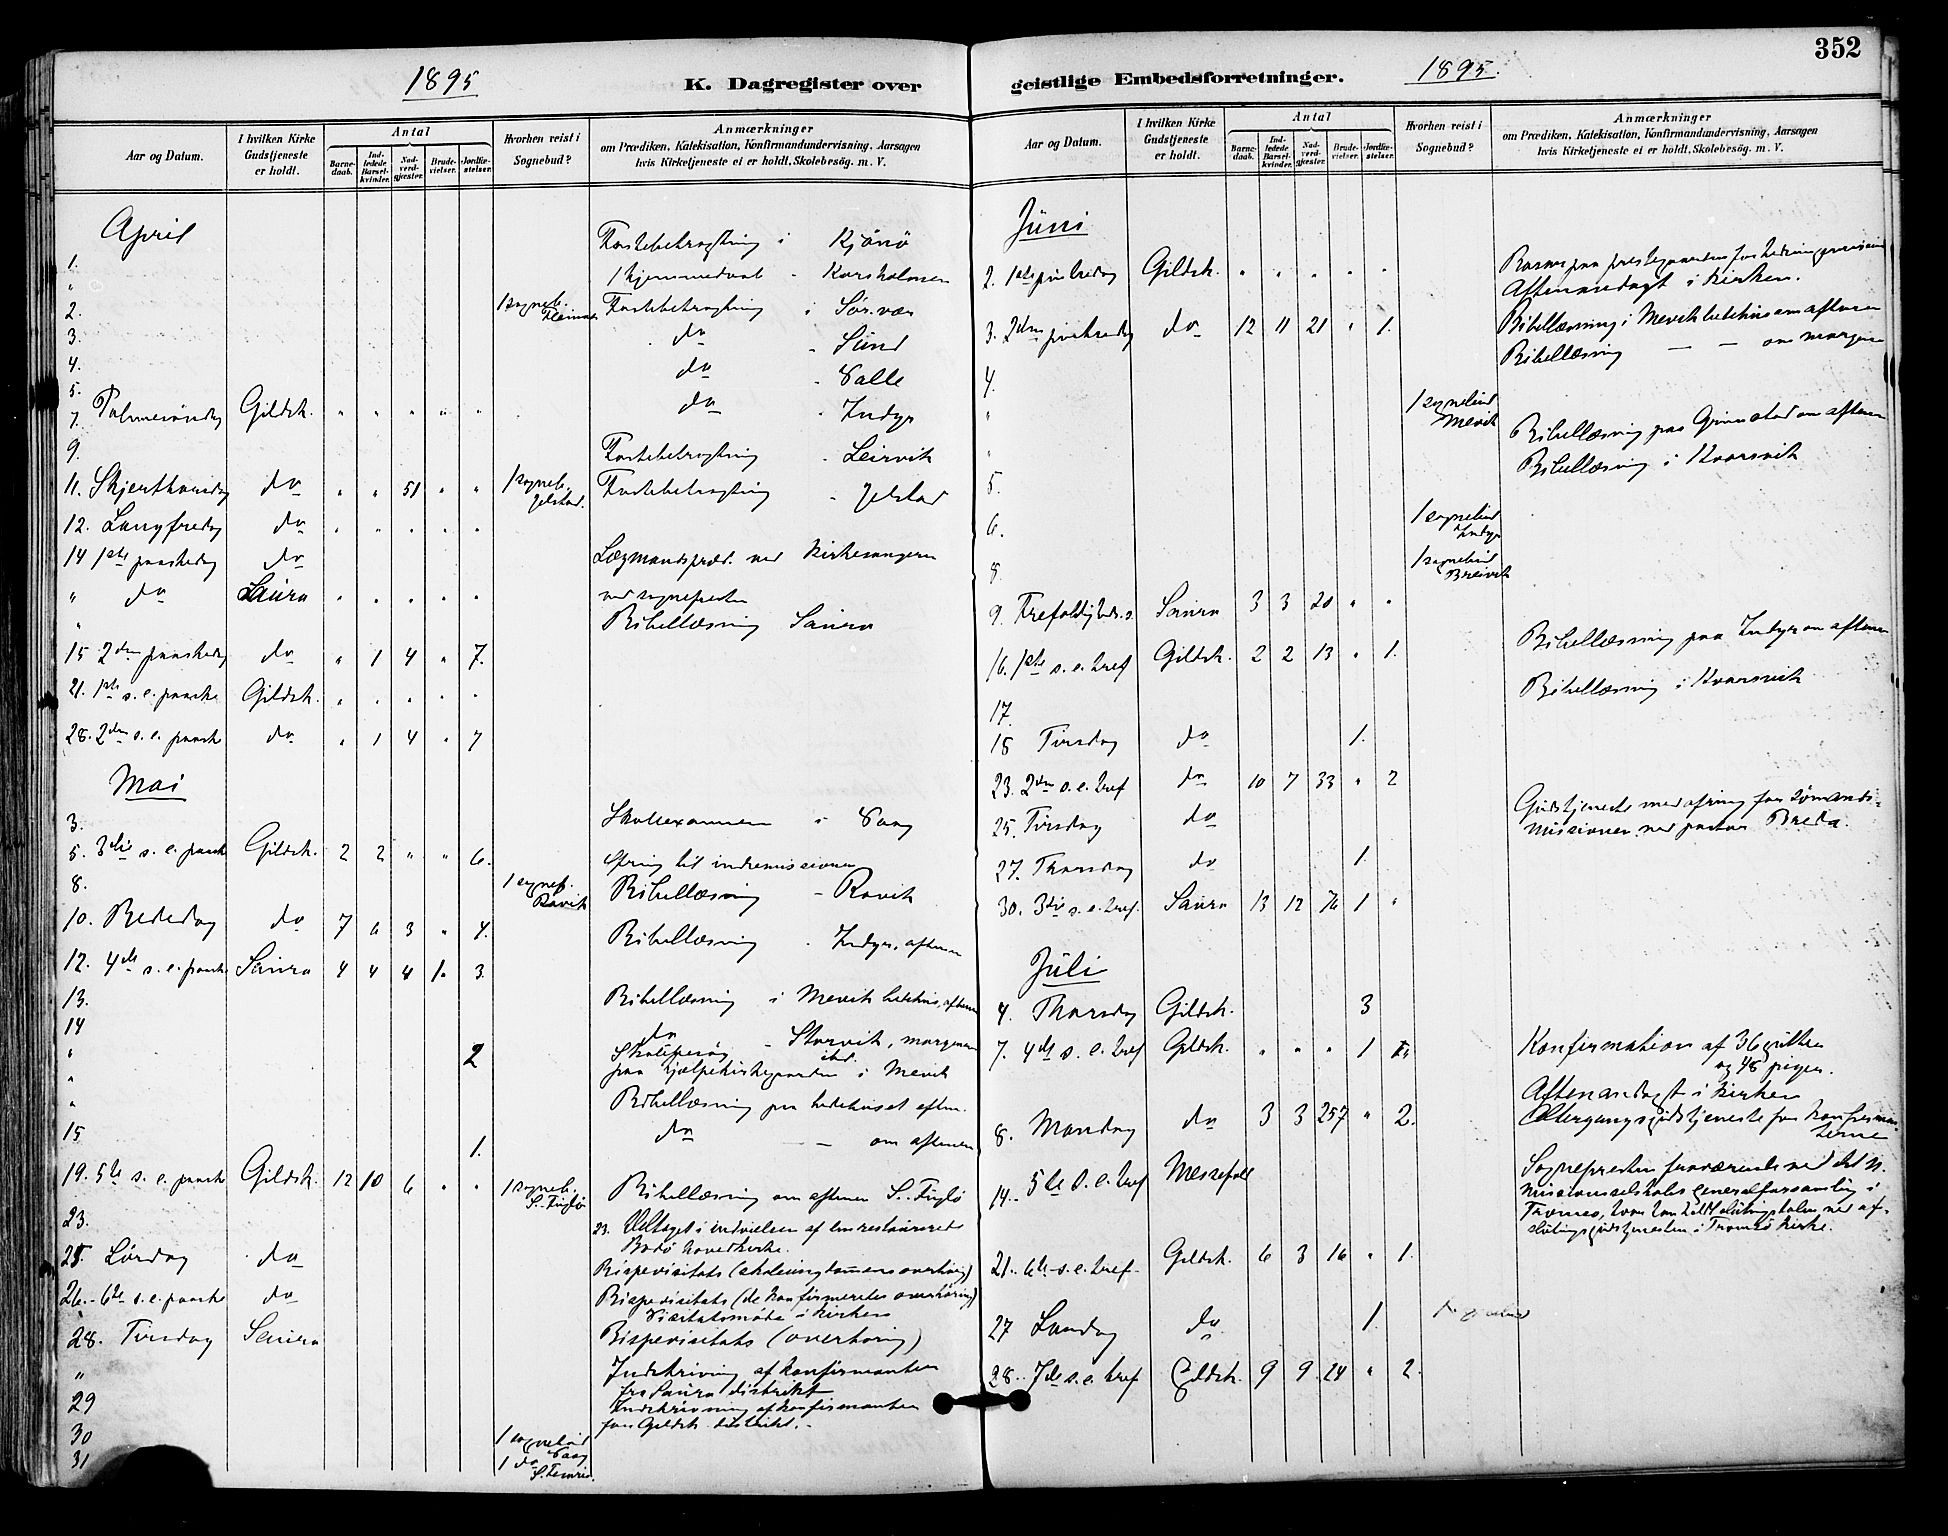 352
1895
K. Dagregister over
Aar og Datum.
I hvilken Kirke Gudstjeneste er holdt.
Antal
Barnedaab.
Indledede Barselkvinder.
Nadverdgjæster.
Brudevielser.
Jordfæstelser.
Hvorhen reist i Sognebud?
Anmærkninger
om Prædiken, Katekisation, Konfirmandundervisning, Aarsagen
hvis Kirketjeneste ei er holdt, Skolebesøg. m. V.
April
1. Fastebetragtning i Kjønø
" 1 hjemmedaab - Karsholmen
2. 1 sogneb. Fastebetragtning i Sørvær
3. do - Sund
4. do - Salle
5. do - Indyr
7. Palmesøndag Gildsk. " " " " "
9. Fastebetragtning - Leirvik
11. Skjærthorsdag do " " 51 " " 1 sogneb. Jelstad. Fastebetragtning - Jelstad
12. Langfredag do " " " " "
14 1ste paaskedag do Lægmandspræd. ved Kirkesangeren
" do Saura " " " " " ved sognepresten
" Bibellæsning Saura
15 2den paaskedag do " 1 4 " 7.
21. 1ste s. e. paaske Gildsk. " " " " "
28. 2den s. e. paaske do " 1 4 " 7
Mai
3. Skoleexamen i Vaag
5. 3die s. e. paask Gildsk. 2 2 " " 6. Ofring til indremissionen
8. 1 sogneb. Ravik Bibellæsning - Ravik
10. Bededag do 7 6 3 " 4. Bibellæsning - Indyr, aftenen
12. 4de s. e. paaske Saura 4 4 4 1. 3.
13. Bibellæsning i Mevik bedehus, aftenen
14 do - Storvik, morgenen
" 2 Skolebesøg ibd.
" paa hjælpekirkegaarden i Mevik
" Bibellæsning paa bedehuset aften.
15 1. do - om aftenen
19. 5te s. e. paaske Gildsk. 12 10 6 " " 1 sogneb. S. Fuglø Bibellæsning om aftenen S. Fuglø
23. 23. Deltaget i indvielsen af den restaurerede
Bodø hovedkirke.
25. Lørdag do Bispevisitats (skoleungdommens overhøring)
26. 6te s. e. paaske do Bispevisitats (de konfirmeredes overhøring)
Visitatsmøde i kirken
28. Tirsdag Saura Bispevisitats (overhøring)
" Indskrivning af konfirmanter
fra Saura distrikt
29 Indskrivning af konfirmanter
for Gildsk. distrikt.
30 1 sognebud Vaag
31 1 do

geistlige Embedsforretninger.
1895.
Aar og Datum.
I hvilken Kirke Gudstjeneste er holdt.
Antal
Barnedaab.
Indledede Barselkvinder.
Nadverdgjæster.
Brudevielser.
Jordfæstelser.
Hvorhen reist i Sognebud?
Anmærkninger
om Prædiken, Katekisation, Konfirmandundervisning, Aarsagen
hvis Kirketjeneste ei er holdt, Skolebesøg. m. V.
Juni
2. 1ste pinsedag Gildsk. " " " " "
Aftenandagt i kirken.
3. 2den pinsedag do 12 11 21 " 1. Bibellæsning i Mevik bedehus om aftenen
4. Bibellæsning — — om morgenen
" 1 sognebud Mevik
" Bibellæsning paa Grimstad om aftenen
5. Bibellæsning i Kvarsvik
6. 1 sognebud Indyr
8. 1 sognebud Breivik
9. Trefoldigheds.s. Saura 3 3 20 " "
16. 1ste s. e. tref Gildsk. 2 2 13 " 1. Bibellæsning paa Indyr om aftenen
17. Bibellæsning i Kvarsvik
18 Tirsdag do 1.
23. 2den s. e. tref do 10 7 33 " 2
25. Tirsdag do Gudstjeneste med ofring for sømands-
missionen ved pastor Breda.
27. Thorsdag do 1.
30. 3die s. e. tref. Saura 13 12 76 1 "
Juli
4. Thorsdag Gildsk. 3
7. 4de s. e. tref Gildsk. " " " 1 Konfirmation af 36 gutter
og 48 piger.
Aftenandagt i kirken
8. Mandag do 3 3 257 " 2. Altergangsgudstjeneste for konfirman-
terne
14. 5te s. e. tref Messefald Sognepresten fraværende ved det n.
missionsselskabs generalforsamling i
Tromsø, hvor han holdt slutningstalen ved af-
slutningsgudstjenesten i Tromsø kirke.
21. 6te s. e. tref. Gildsk. 6 3 16 " 1.
27 Landag do 1.
28. 7de s. e. tref Gildsk. 9 9 24 " 2.